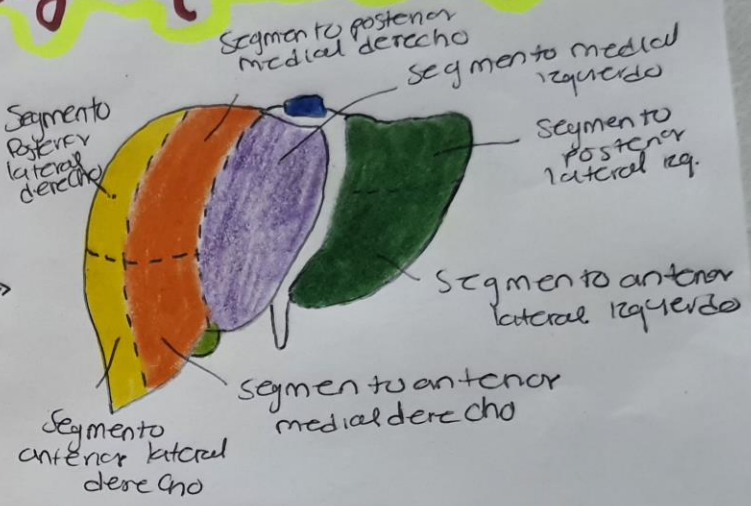 Segmento posterior
medial derecho
segmento medial
izquierdo
Segmento
Posterior
lateral
derecho
Segmento
posterior
lateral izq.
Segmento anterior
lateral izquierdo
segmento anterior
medial derecho
Segmento
anterior lateral
derecho